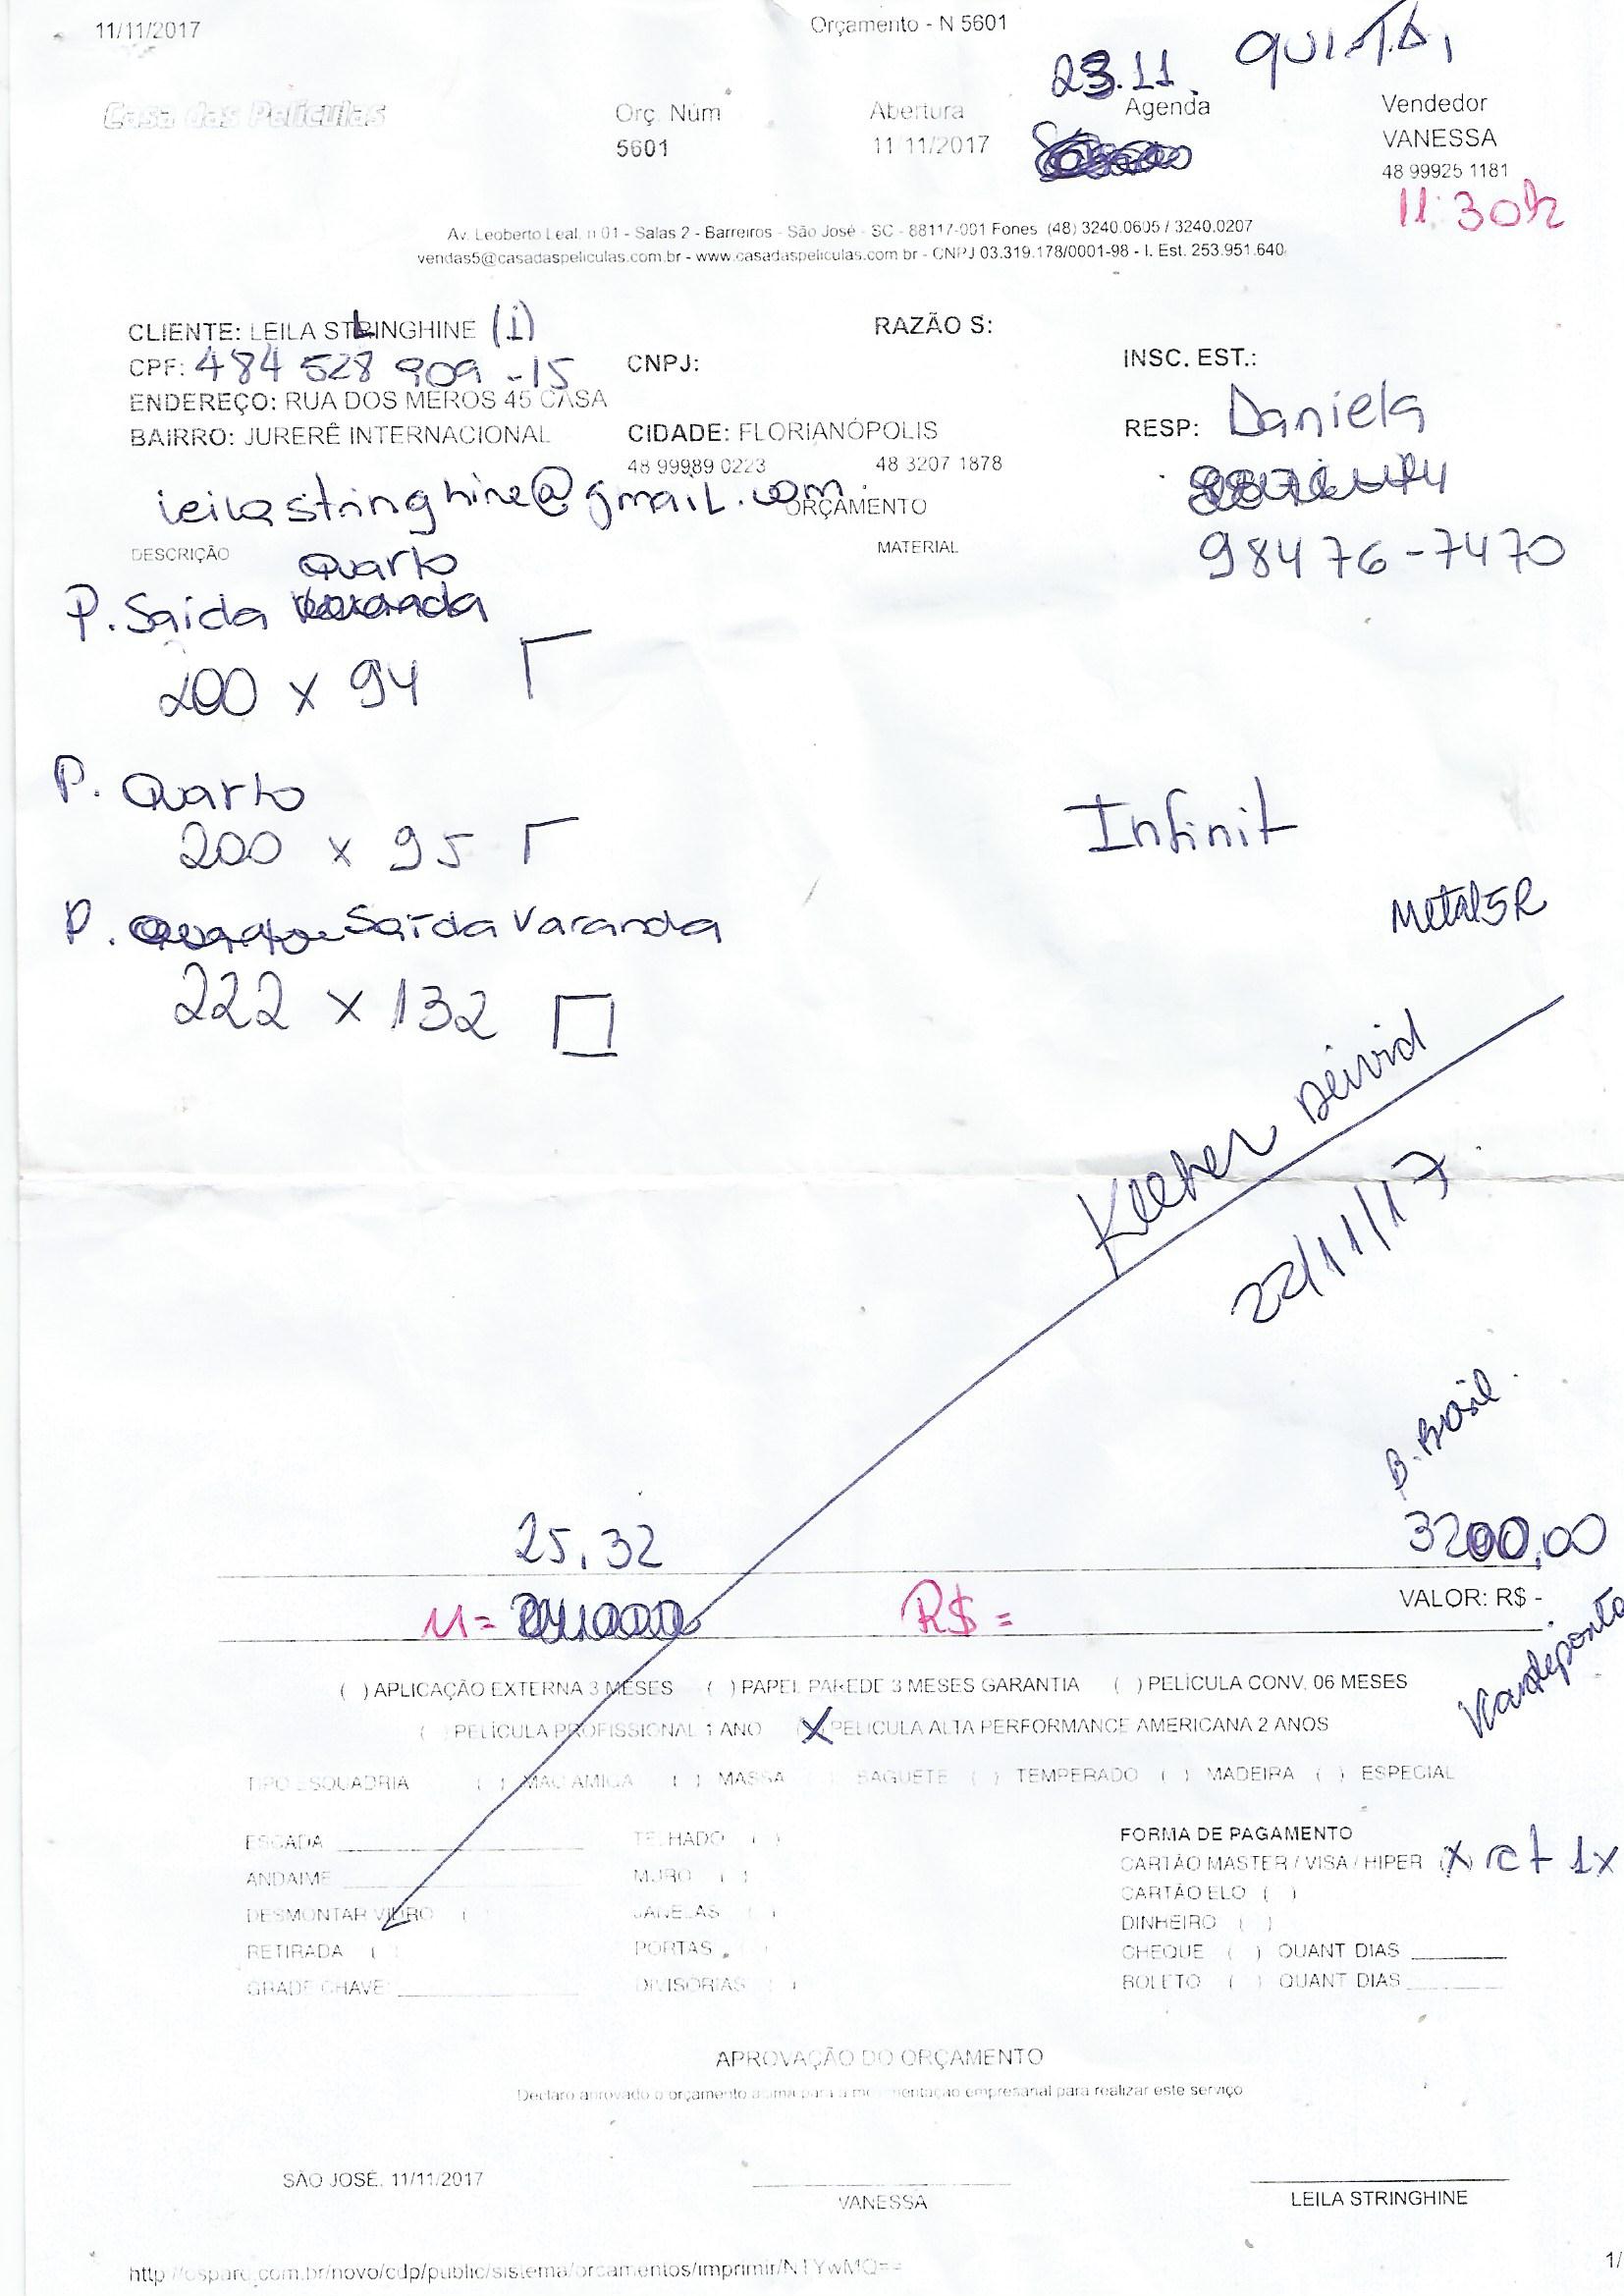 11/11/2017 Orçamento - N 5601
23.11. QUINTA,
Casa das Películas Orç. Núm Abertura Agenda Vendedor
5601 11/11/2017 VANESSA
48 99925 1181
11:30h
Av. Leoberto Leal, n 01 - Salas 2 - Barreiros - São José - SC - 88117-001 Fones (48) 3240.0605 / 3240.0207
vendas5@casadaspeliculas.com.br - www.casadaspeliculas.com br - CNPJ 03.319.178/0001-98 - I. Est. 253.951.640
CLIENTE: LEILA STRINGHINE (I) RAZÃO S:
CPF: 484 528 909 -15 CNPJ: INSC. EST.:
ENDEREÇO: RUA DOS MEROS 45 CASA
BAIRRO: JURERÊ INTERNACIONAL CIDADE: FLORIANÓPOLIS RESP: Daniela
48 99989 0223 48 3207 1878
leilastringhine@gmail.com
ORÇAMENTO
98476-7470
DESCRIÇÃO MATERIAL
Quarto
P. Saída Varanda
200 x 94
P. Quarto
200 x 95
Infinit
Metal5R
P. Quarto Saída Varanda
222 x 132
Kleber Deivid
22/11/17
B. Brasil
25,32 3200,00
M= R$ = VALOR: R$ -
( ) APLICAÇÃO EXTERNA 3 MESES ( ) PAPEL PAREDE 3 MESES GARANTIA ( ) PELÍCULA CONV. 06 MESES
( ) PELÍCULA PROFISSIONAL 1 ANO X PELICULA ALTA PERFORMANCE AMERICANA 2 ANOS
TIPO ESQUADRIA ( ) MAO AMIGA ( ) MASSA ( ) BAGUETE ( ) TEMPERADO ( ) MADEIRA ( ) ESPECIAL
ESCADA TELHADO ( ) FORMA DE PAGAMENTO
ANDAIME MURO ( ) CARTÃO MASTER / VISA / HIPER (X) rct 1x
DESMONTAR VIDRO ( ) JANELAS ( ) CARTÃO ELO ( )
DINHEIRO ( )
RETIRADA ( ) PORTAS ( ) CHEQUE ( ) QUANT DIAS
GRADE CHAVE DIVISÓRIAS ( ) BOLETO ( ) QUANT DIAS
APROVAÇÃO DO ORÇAMENTO
Declaro aprovado o orçamento acima para a movimentação empresarial para realizar este serviço
SÃO JOSÉ, 11/11/2017
VANESSA LEILA STRINGHINE
1/